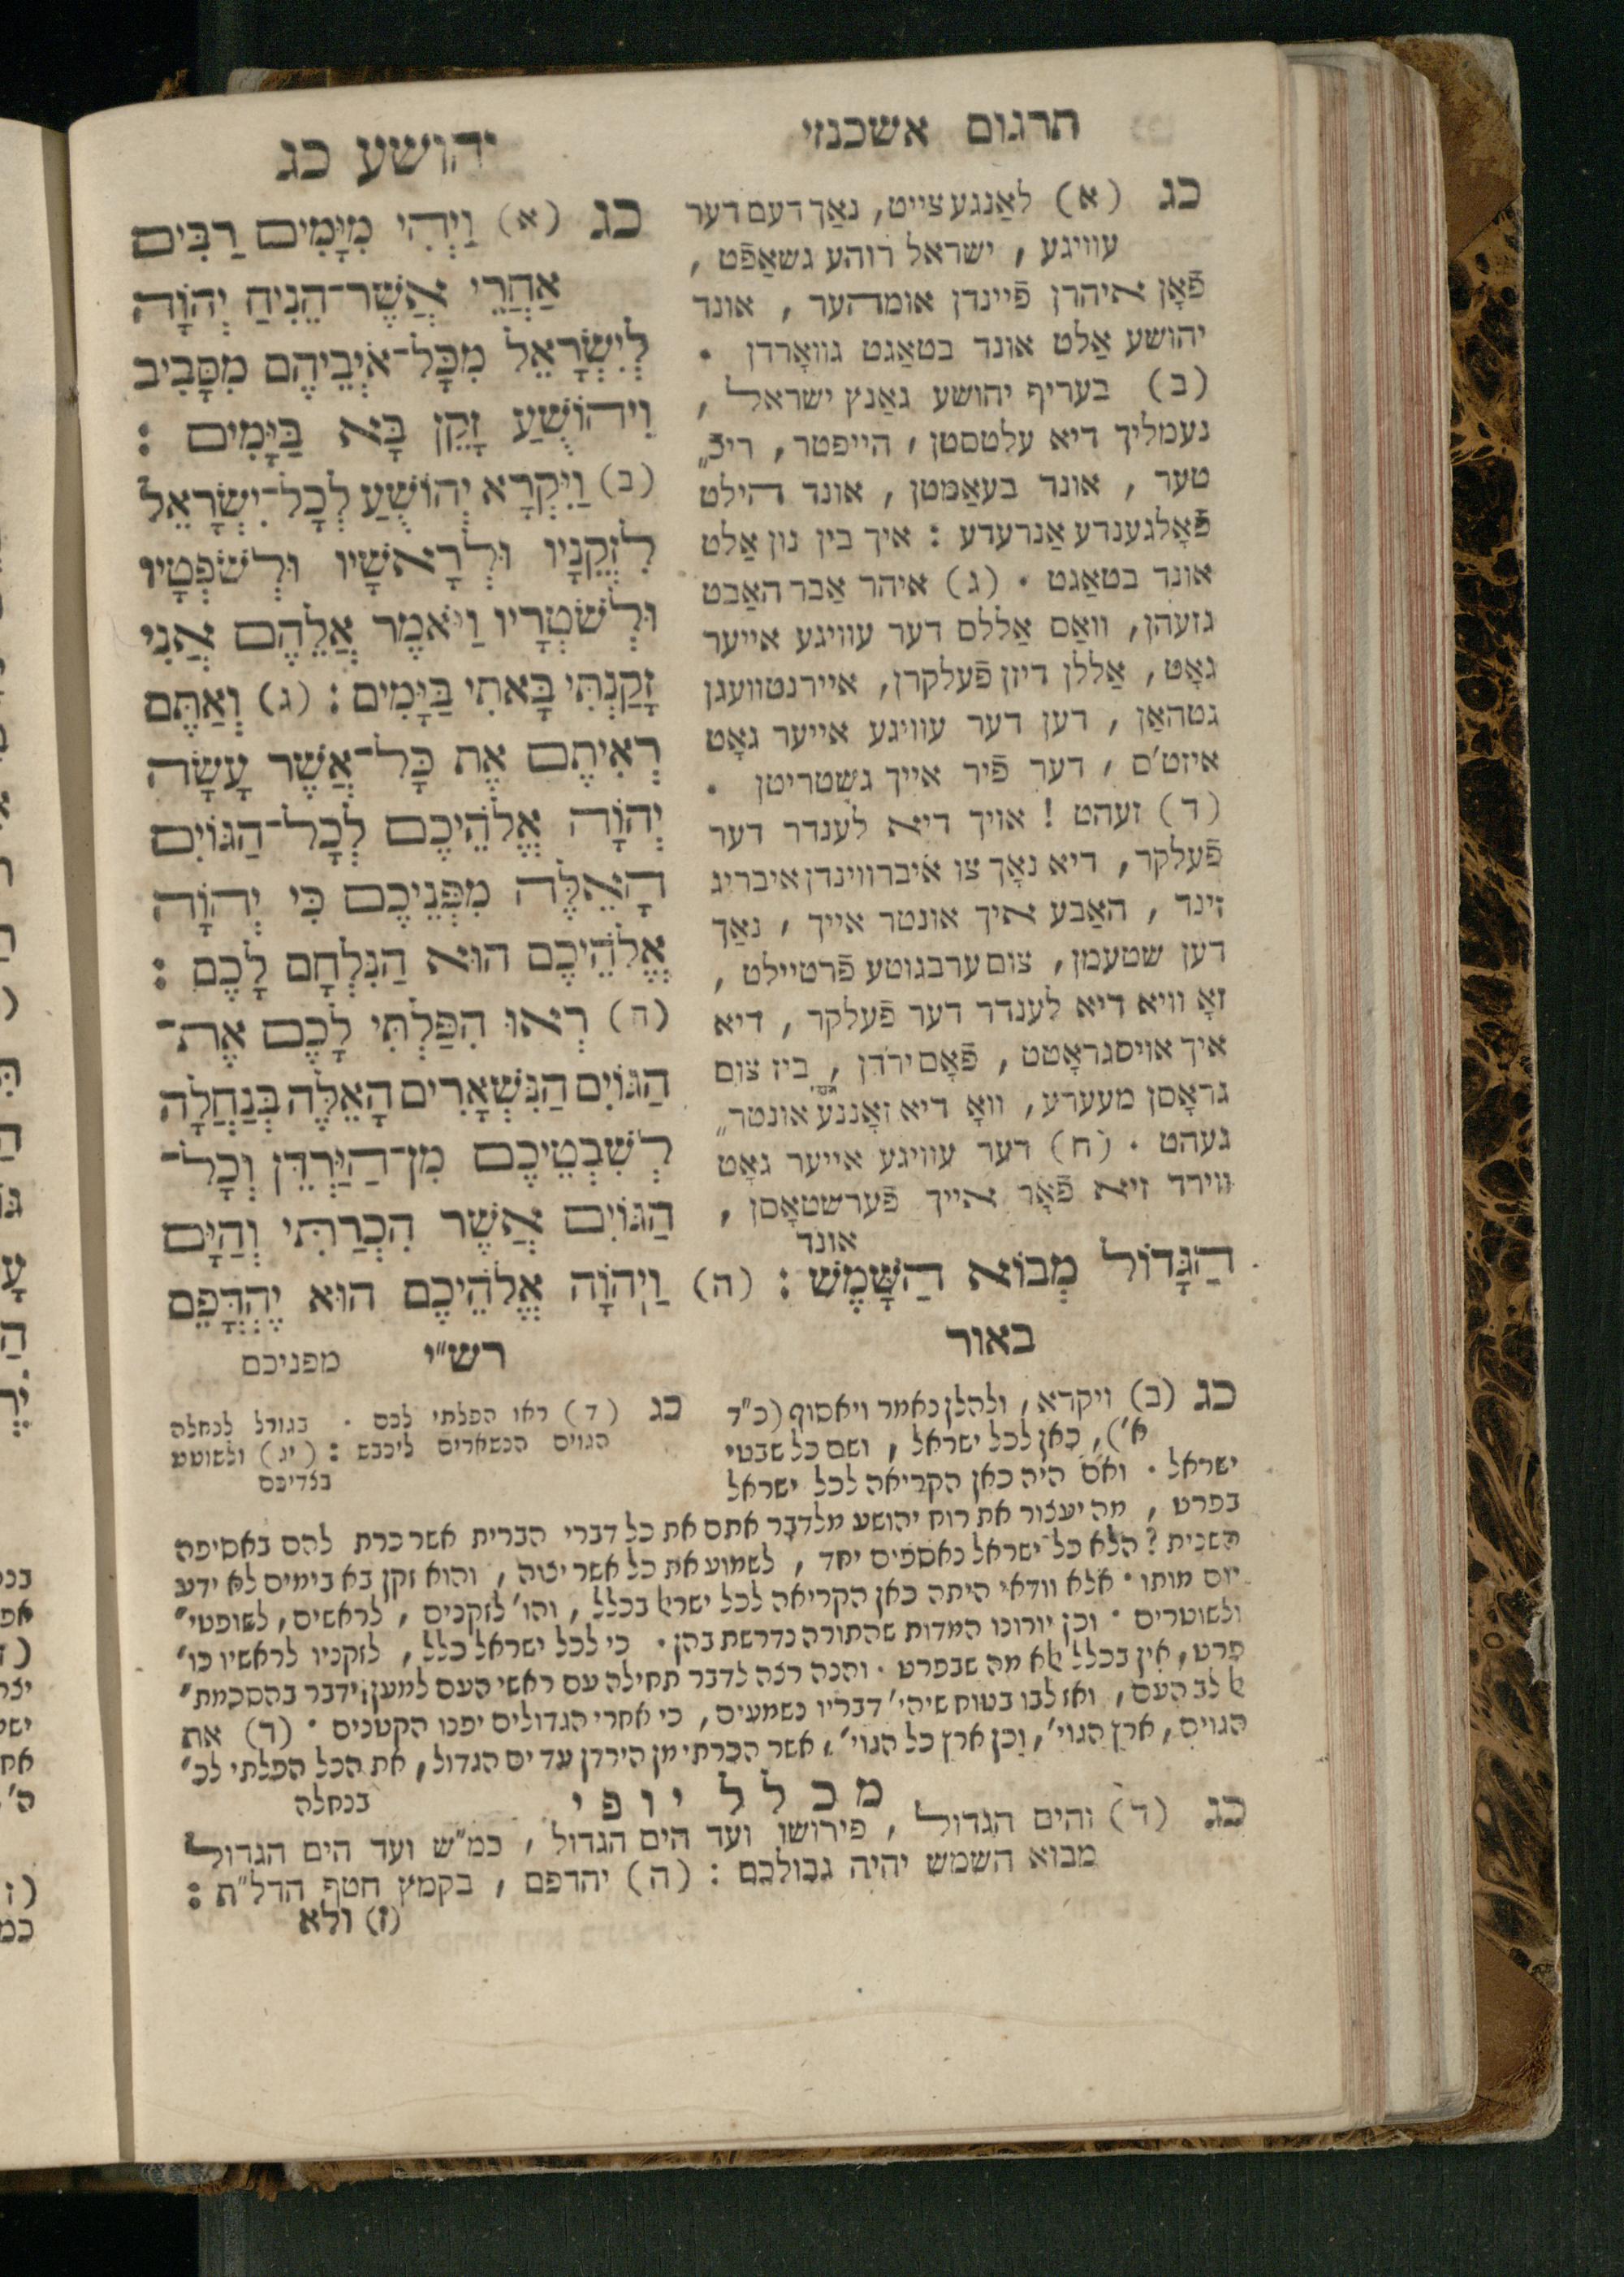 תרגום אשכנזי
יהושע כג
כג (א) וַיְהִי מִיָּמִים רַבִּים
אַחֲרֵי אֲשֶׁר־הֵנִיחַ יְהוָֹה
לְיִשְׂרָאֵל מִכָּל־אֹיְבֵיהֶם מִסָּבִיב
וִיהוֹשֻׁעַ זָקֵן בָּא בַּיָּמִים :
(ב) וַיִּקְרָא יְהוֹשֻׁעַ לְכָל־יִשְׂרָאֵל
לִזְקֵנָיו וּלְרָאשָׁיו וּלְשֹׁפְטָיו
וּלְשֹׁטְרָיו וַיֹּאמֶר אֲלֵהֶם אֲנִי
זָקַנְתִּי בָּאתִי בַּיָּמִים : (ג) וְאַתֶּם
רְאִיתֶם אֶת כָּל־אֲשֶׁר עָשָׂה
יְהוָֹה אֱלֹהֵיכֶם לְכָל־הַגּוֹיִם
הָאֵלֶּה מִפְּנֵיכֶם כִּי יְהוָֹה
אֱלֹהֵיכֶם הוּא הַנִּלְחָם לָכֶם :
(ד) רְאוּ הִפַּלְתִּי לָכֶם אֶת־
הַגּוֹיִם הַנִּשְׁאָרִים הָאֵלֶּה בְּנַחֲלָה
לְשִׁבְטֵיכֶם מִן־הַיַּרְדֵּן וְכָל־
הַגּוֹיִם אֲשֶׁר הִכְרַתִּי וְהַיָּם
הַגָּדוֹל מְבוֹא הַשָּׁמֶשׁ : (ה) וַיהוָֹה אֱלֹהֵיכֶם הוּא יֶהְדֳּפֵם
מפניכם
כג (א) לאַנגע צייט, נאַך דעם דער
עוויגע, ישראל רוהע גשאַפֿט,
פֿאָן איהרן פֿיינדן אומהער, אונד
יהושע אַלט אונד בטאַגט געוואָרדן .
(ב) בעריף יהושע גאַנץ ישראל,
נעמליך דיא עלטסטן, הייפטר, ריכ״
טער, אונד בעאַמטן, אונד הילט
פֿאָלגענדע אַנרעדע : איך בין נון אַלט
אונד בטאַגט . (ג) איהר אַבר האַבט
גזעהן, וואַס אַללס דער עוויגע אייער
גאָט, אַללן דיזן פֿעלקרן, איירנטוועגן
גטהאַן, דען דער עוויגע אייער גאָט
איזט'ס, דער פֿיר אייך גשטריטן .
(ד) זעהט ! אויך דיא לענדר דער
פֿעלקר, דיא נאָך צו איברווינדן איבריג
זינד, האַבע איך אונטר אייך, נאַך
דען שטעמן, צום ערבגוטע פֿרטיילט,
זאָ וויא דיא לענדר דער פֿעלקר, דיא
איך אויסגראָטט, פֿאָם ירדן, ביז צום
גראָסן מעערע, וואָ דיא זאָננע אונטר״
געהט . (ח) דער עוויגע אייער גאָט
ווירד זיא פֿאָר אייך פֿערשטאָסן,
אונד
באור
כג (ב) ויקרא, ולהלן נאמר ויאסוף (כ״ד
א'), כאן לכל ישראל, ושם כל שבטי
ישראל . ואם היה כאן הקריאה לכל ישראל
בפרט, מה יעצור את רוח יהושע מלדבר אתם את כל דברי הברית אשר כרת להם באסיפה
השנית ? הלא כל־ישראל נאספים יחד, לשמוע את כל אשר יצוה, והוא זקן בא בימים לא ידע
יום מותו . אלא וודאי היתה כאן הקריאה לכל ישראל בכלל, והו' לזקנים, לראשים, לשופטי״
ולשוטרים . וכן יורונו המדות שהתורה נדרשת בהן . כי לכל ישראל כלל, לזקניו לראשיו כו'
פרט, אין בכלל אלא מה שבפרט . והנה רצה לדבר תחילה עם ראשי העם למען ידבר בהסכמת״
אל לב העם, ואז לבו בטוח שיהי' דבריו נשמעים, כי אחרי הגדולים יפנו הקטנים . (ד) את
הגוים, ארץ הגוי', וכן ארץ כל הגוי', אשר הכרתי מן הירדן עד ים הגדול, את הכל הפלתי לכ״
בנחלה
רש״י
כג (ד) ראו הפלתי לכם . בגורל לנחלה
הגוים הנשארים ליכבש : (יג) ולשוטט
בצדיכם
מכלל יופי
כג (ד) והים הגדול, פירושו ועד הים הגדול, כמ״ש ועד הים הגדול
מבוא השמש יהיה גבולכם : (ה) יהדפם, בקמץ חטף הדל״ת :
(ז) ולא